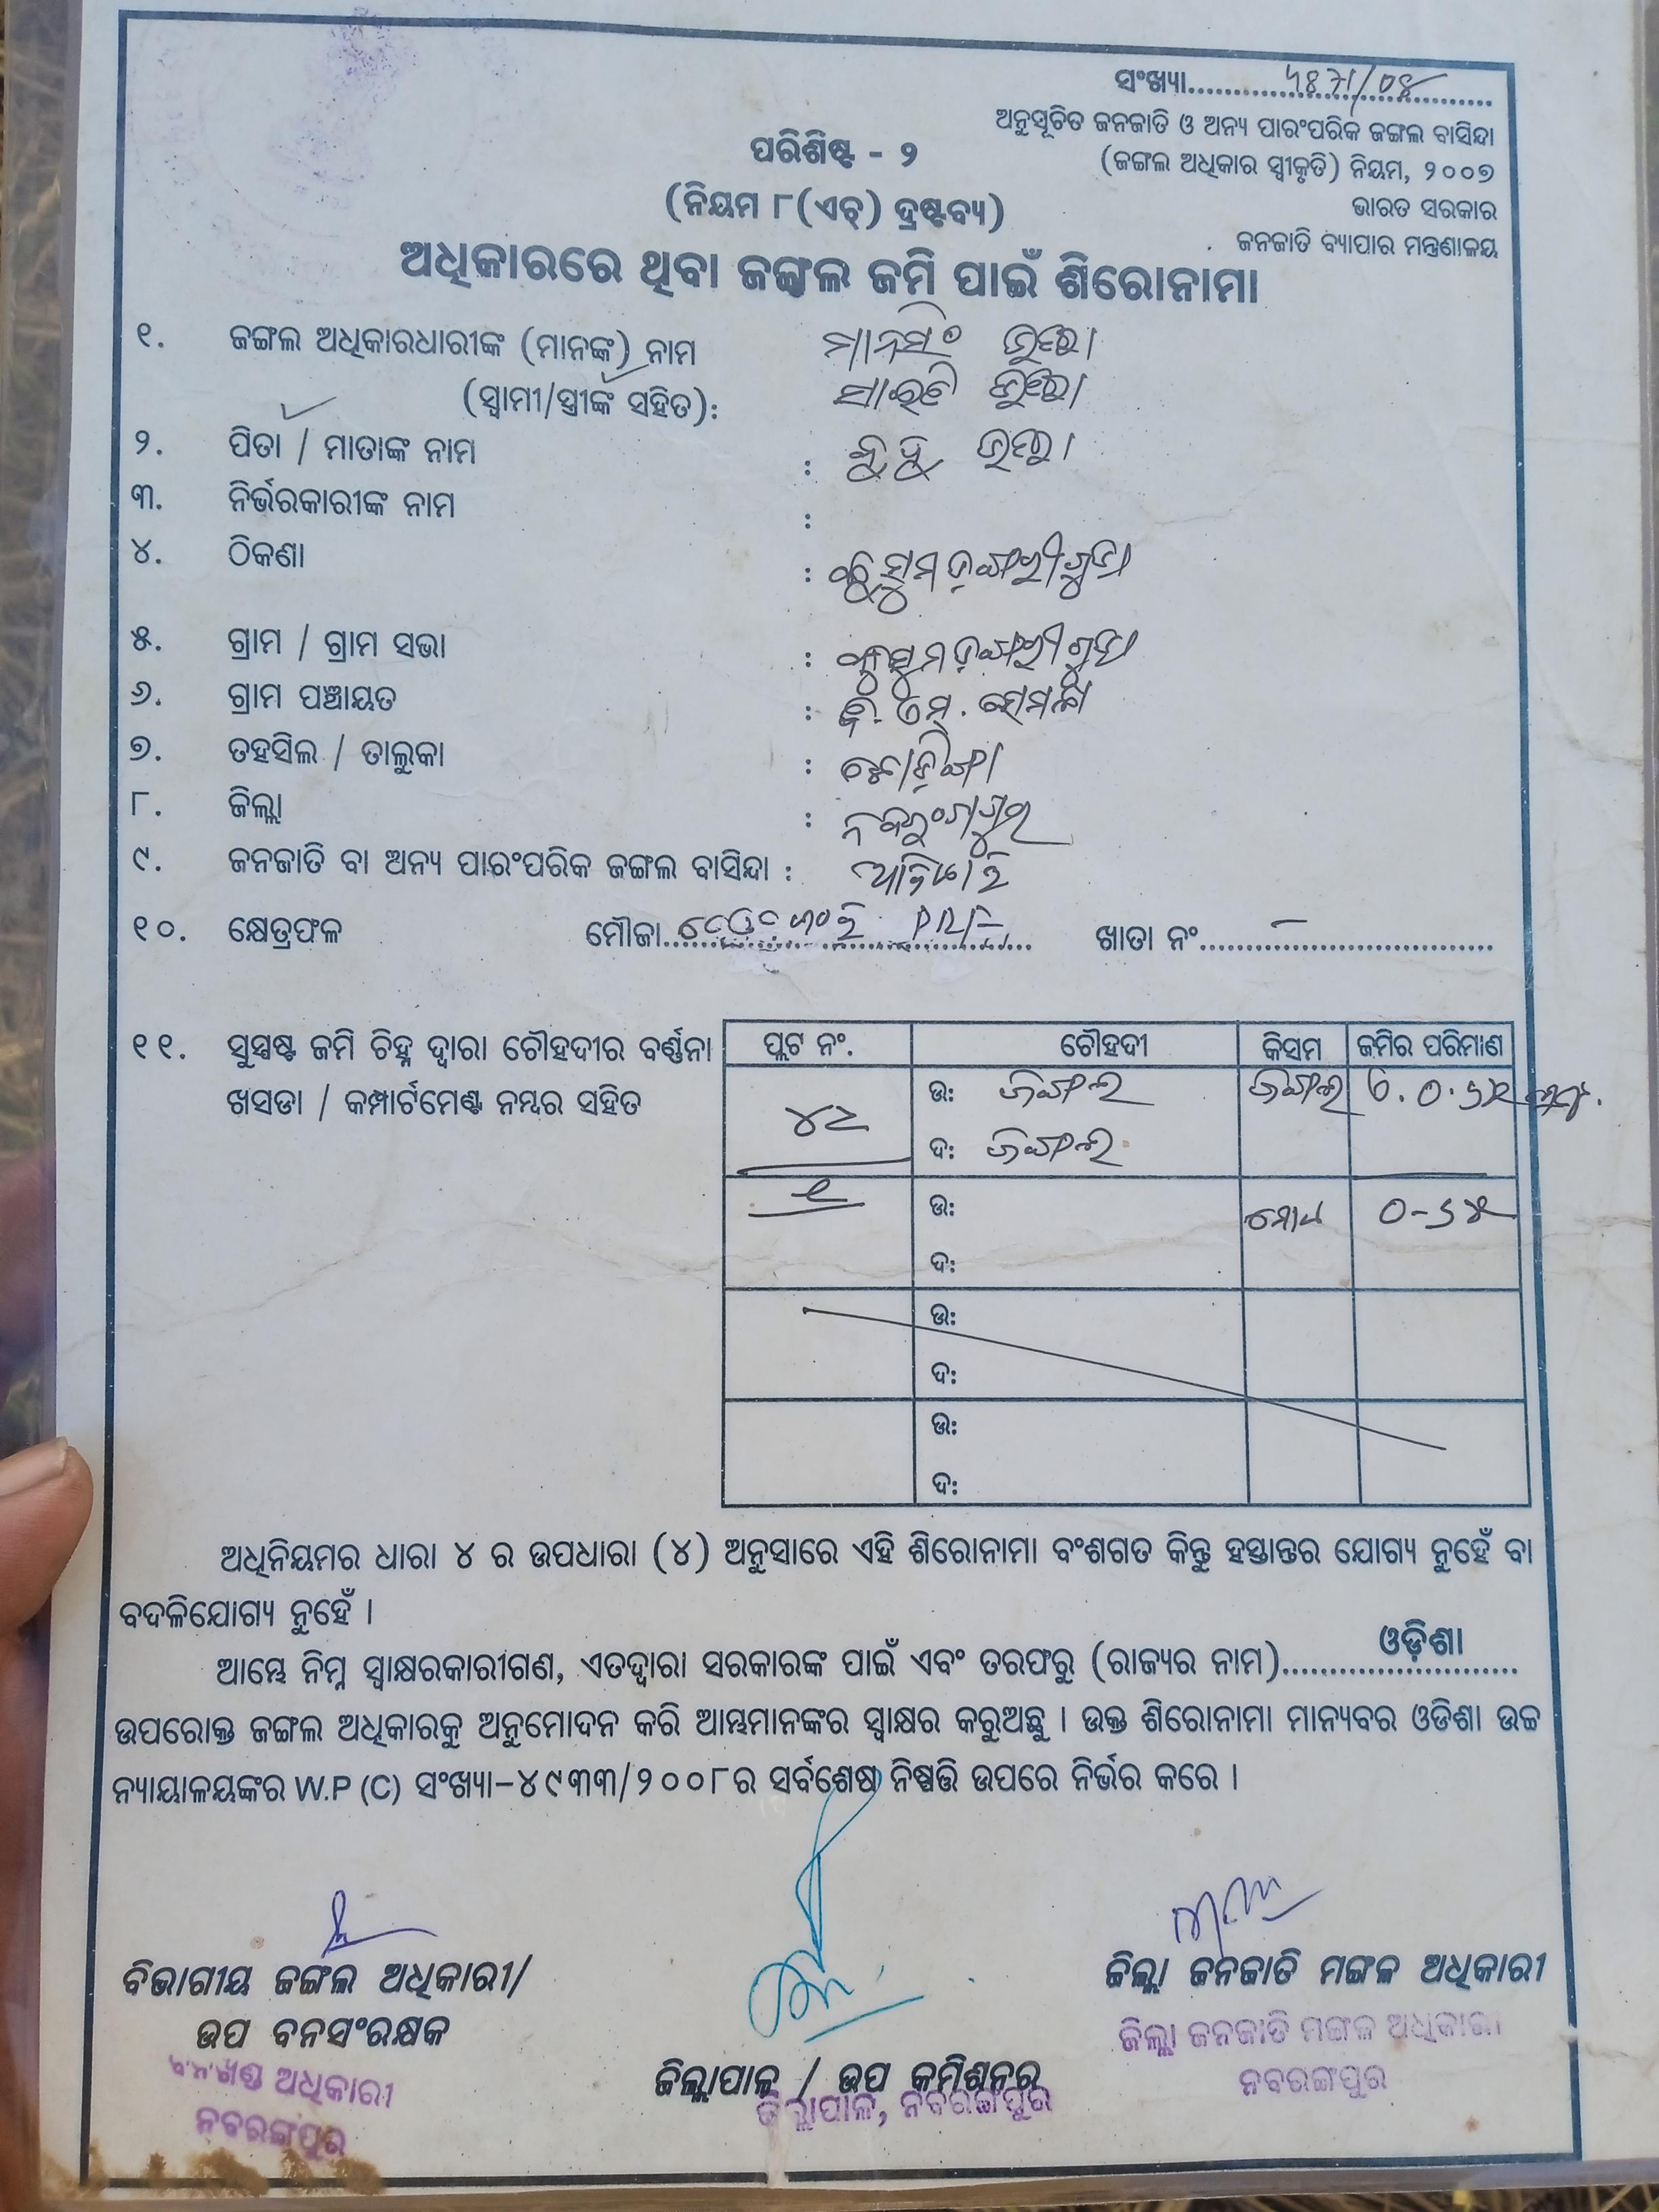 ସଂଖ୍ୟା
ଅନୁସୂଚିତ ଜନଜାତି ଓ ଅନ୍ୟ ପାରଂପରିକ ଜଙ୍ଗଲ ବାସିନ୍ଦା
ପରିଶିଷ୍ଟ - ୨
(ଜଙ୍ଗଲ ଅଧିକାର ସ୍ୱୀକୃତି) ନିୟମ, ୨୦୦୭
(ନିୟମ ୮(ଏଚ୍) ଦ୍ରଷ୍ଟବ୍ୟ)
ଭାରତ ସରକାର
ଜନଜାତି ବ୍ୟାପାର ମନ୍ତ୍ରଣାଳୟ
ଅଧିକାରରେ ଥିବା ଜଙ୍ଗଲ ଜମି ପାଇଁ ଶିରୋନାମା
୧. ଜଙ୍ଗଲ ଅଧିକାରଧାରୀଙ୍କ (ମାନଙ୍କ) ନାମ ମାନସିଂ
(ସ୍ୱାମୀ/ସ୍ତ୍ରୀଙ୍କ ସହିତ):
୨. ପିତା / ମାତାଙ୍କ ନାମ :
୩. ନିର୍ଭରକାରୀଙ୍କ ନାମ :
୪. ଠିକଣା :
୫. ଗ୍ରାମ / ଗ୍ରାମ ସଭା :
୬. ଗ୍ରାମ ପଞ୍ଚାୟତ :
୭. ତହସିଲ / ତାଲୁକା :
୮. ଜିଲ୍ଲା : ନବରଂଗପୁର
୯. ଜନଜାତି ବା ଅନ୍ୟ ପାରଂପରିକ ଜଙ୍ଗଲ ବାସିନ୍ଦା : ଆଦିବାସି
୧୦. କ୍ଷେତ୍ରଫଳ ମୌଜା ଖାତା ନଂ
୧୧. ସୁସ୍ପଷ୍ଟ ଜମି ଚିହ୍ନ ଦ୍ୱାରା ଚୌହଦୀର ବର୍ଣ୍ଣନା
ଖସଡା / କମ୍ପାର୍ଟମେଣ୍ଟ ନମ୍ବର ସହିତ
ପ୍ଲଟ ନଂ. ଚୌହଦୀ କିସମ ଜମିର ପରିମାଣ
୪୨ ଉ: ଜଙ୍ଗଲ ଜଙ୍ଗଲ
ଦ: ଜଙ୍ଗଲ
ଉ:
ଦ:
ଉ:
ଦ:
ଉ:
ଦ:
ଅଧିନିୟମର ଧାରା ୪ ର ଉପଧାରା (୪) ଅନୁସାରେ ଏହି ଶିରୋନାମା ବଂଶଗତ କିନ୍ତୁ ହସ୍ତାନ୍ତର ଯୋଗ୍ୟ ନୁହେଁ ବା
ବଦଳିଯୋଗ୍ୟ ନୁହେଁ ।
ଆମ୍ଭେ ନିମ୍ନ ସ୍ୱାକ୍ଷରକାରୀଗଣ, ଏତଦ୍ଦ୍ୱାରା ସରକାରଙ୍କ ପାଇଁ ଏବଂ ତରଫରୁ (ରାଜ୍ୟର ନାମ) ଓଡ଼ିଶା
ଉପରୋକ୍ତ ଜଙ୍ଗଲ ଅଧିକାରକୁ ଅନୁମୋଦନ କରି ଆମ୍ଭମାନଙ୍କର ସ୍ୱାକ୍ଷର କରୁଅଛୁ । ଉକ୍ତ ଶିରୋନାମା ମାନ୍ୟବର ଓଡିଶା ଉଚ୍ଚ
ନ୍ୟାୟାଳୟଙ୍କର W.P (C) ସଂଖ୍ୟା-୪୯୩୩/୨୦୦୮ର ସର୍ବଶେଷ ନିଷ୍ପତ୍ତି ଉପରେ ନିର୍ଭର କରେ ।
ବିଭାଗୀୟ ଜଙ୍ଗଲ ଅଧିକାରୀ/
ଉପ ବନସଂରକ୍ଷକ
ବନଖଣ୍ଡ ଅଧିକାରୀ
ନବରଙ୍ଗପୁର
ଜିଲ୍ଲାପାଳ / ଉପ କମିଶନର
ଜିଲ୍ଲାପାଳ, ନବରଙ୍ଗପୁର
ଜିଲ୍ଲା ଜନଜାତି ମଙ୍ଗଳ ଅଧିକାରୀ
ଜିଲ୍ଲା ଜନଜାତି ମଙ୍ଗଳ ଅଧିକାରୀ
ନବରଙ୍ଗପୁର